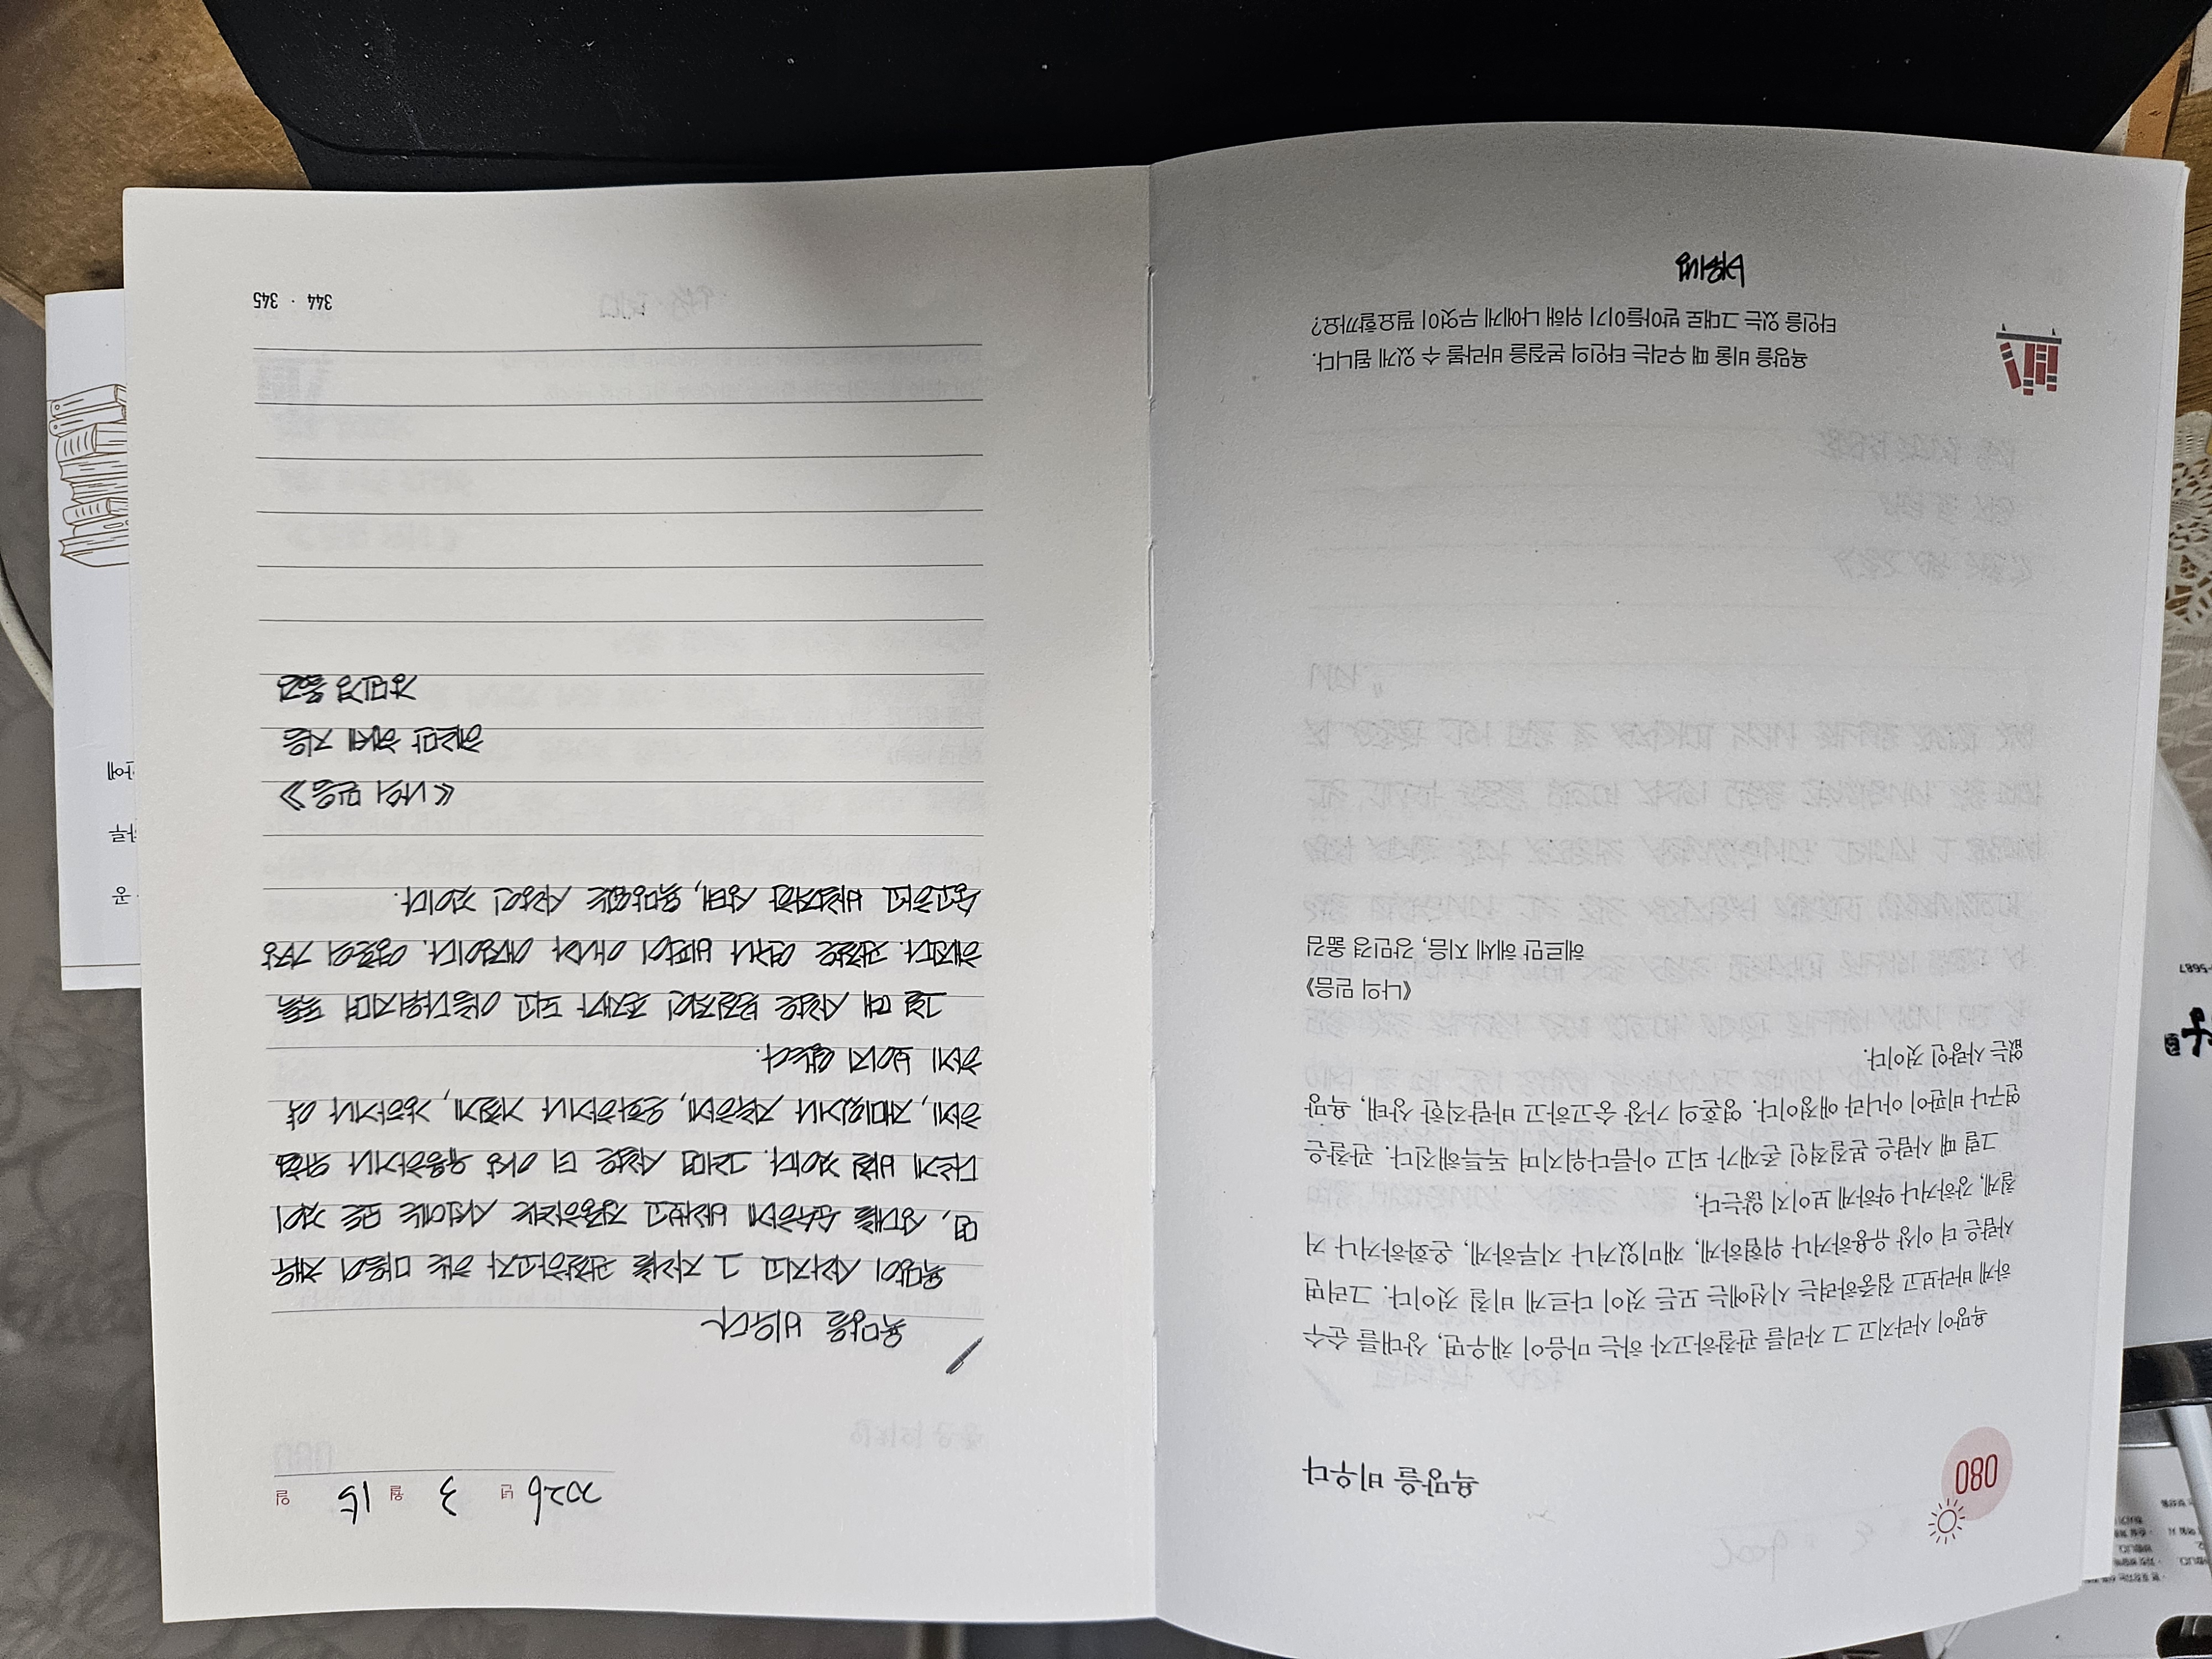 080
욕망을 비우다
욕망이 사라지고 그 자리를 관찰하고자 하는 마음이 채우면, 상대를 순수
하게 바라보고 집중하려는 시선에는 모든 것이 다르게 비칠 것이다. 그러면
사람은 더 이상 유용하거나 위험하게, 재미있거나 지루하게, 온화하거나 거
칠게, 강하거나 약하게 보이지 않는다.
그럴 때 사람은 본질적인 존재가 되고 아름다워지며 독특해진다. 관찰은
연구나 비판이 아니라 애정이다. 영혼의 가장 숭고하고 바람직한 상태, 욕망
없는 사랑인 것이다.
《나의 믿음》
헤르만 헤세 지음, 강민경 옮김
욕망을 비울 때 우리는 타인의 본질을 바라볼 수 있게 됩니다.
타인을 있는 그대로 받아들이기 위해 나에게 무엇이 필요할까요?
2026 년 3 월 15 일
욕망을 비우다
욕망이 사라지고 그 자리를 관찰하고자 하는 마음이 채우
면, 상대를 순수하게 바라보고 집중하려는 시선에는 모든 것이
다르게 비칠 것이다. 그러면 사람은 더 이상 유용하거나 위험
하게, 재미있거나 지루하게, 온화하거나 거칠게, 강하거나 약
하게 보이지 않는다.
그럴 때 사람은 본질적인 존재가 되고 아름다워지며 독특
해진다. 관찰은 연구나 비판이 아니라 애정이다. 영혼의 가장
숭고하고 바람직한 상태, 욕망없는 사랑인 것이다.
《나의 믿음》
헤르만 헤세 지음
강민경 옮김
344 · 345